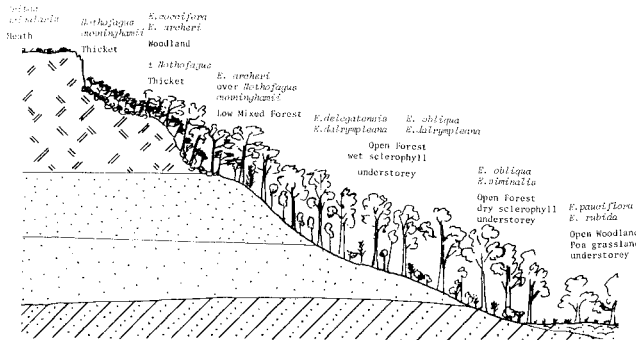 Heath
Nothofagus
cunninghamii
Thicket
E. coccifera
E. archeri
Woodland
± Nothofagus
Thicket
E. archeri
over Nothofagus
cunninghamii
Low Mixed Forest
E.delegatensis
E.dalrympleana
E. obliqua
E.dalrympleana
Open Forest
wet sclerophyll
understorey
E. obliqua
E.viminalis
Open Forest
dry sclerophyll
understorey
E.pauciflora
E. rubida
Open Woodland
Poa grassland
understorey